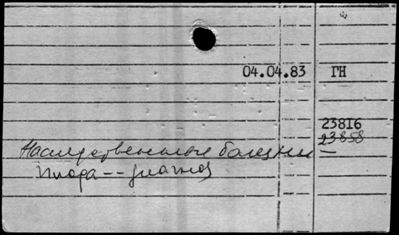 04.04.83 ГН
23816
23858
Наследственные болезни —
плода -- диагноз